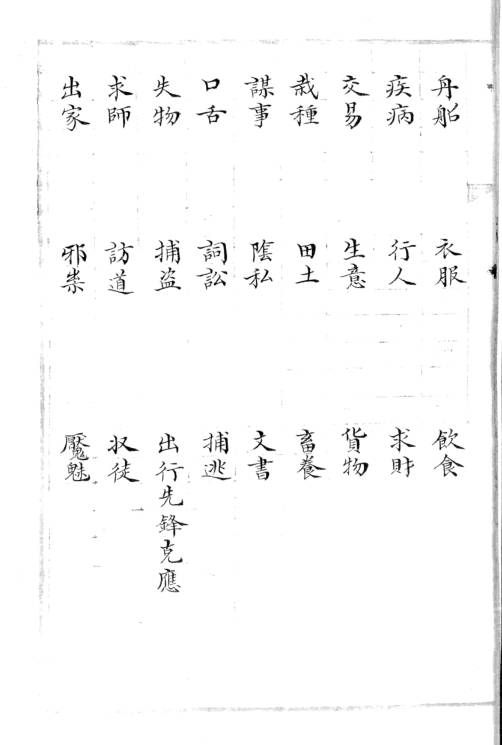 舟船　衣服　飲食
疾病　行人　求財
交易　生意　貨物
栽種　田土　畜養
謀事　陰私　文書
口舌　詞訟　捕逃
失物　捕盜　出行先鋒克應
求師　訪道　収徒
出家　邪祟　魘魅